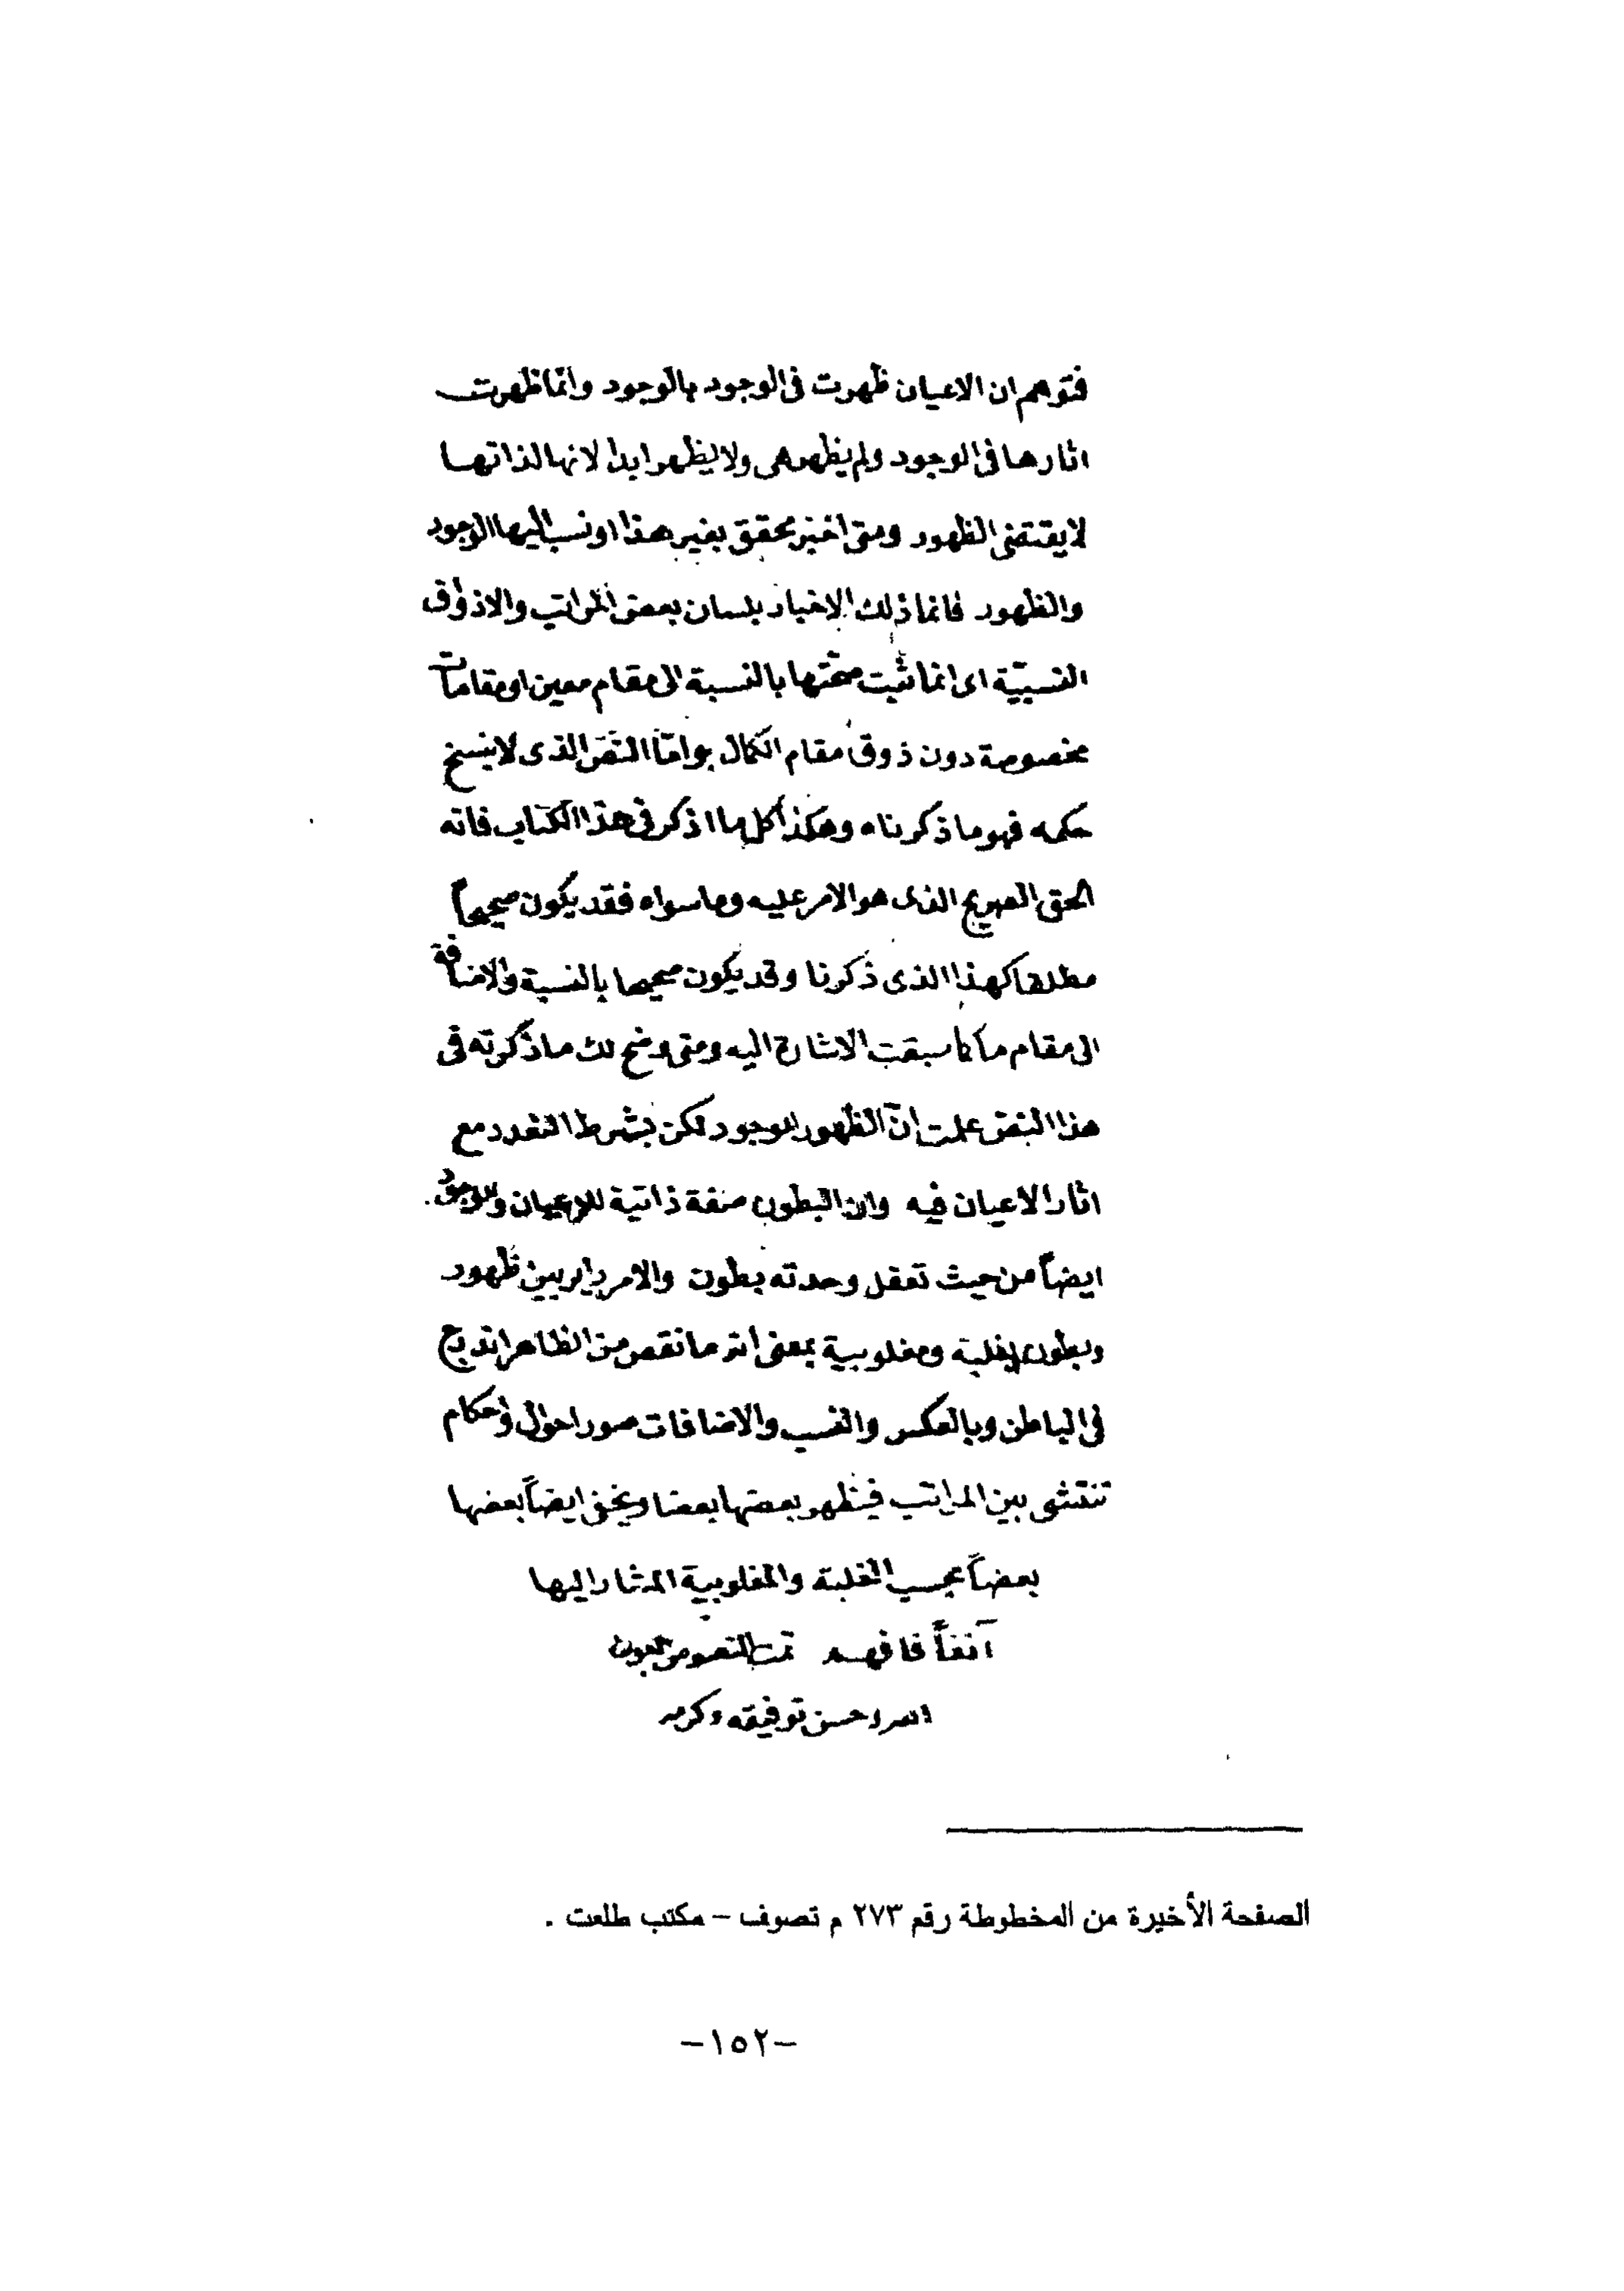 فتوهم ان الاعيان ظهرت فى الوجود بالوجود وانما ظهرت
اثارها فى الوجود ولم يظهر هى ولا يظهر ابدا لانها لذاتها
لا يقتضى الظهور ومتى اخبر محقق بغير هذا او نسب اليها الوجود
والظهور فانما ذلك الاخبار بلسان بعض المراتب والاذواق
النسبيّة اى انما ثبت صحّتها بالنسبة الى مقام معين او مقامات
مخصوصة دون ذوق مقام الكمال وامّا النصّ الذى لا ينسخ
حكمه فهو ما ذكرناه وهكذا كل ما اذكر فى هذا الكتاب فانه
الحق الصريح الذى هو الامر عليه وما سواه فقد يكون صحيحاً
مطلقا كهذا الذى ذكرنا وقد يكون صحيحا بالنسبة والاضافة
الى مقام ما كما سبقت الاشارة اليه ومتى وضح لك ما ذكرته فى
هذا النص علمت انّ الظهور للوجود لكن بشرط التعدد مع
اثار الاعيان فيه وان البطون صفة ذاتية للاعيان وللوجود
ايضاً من حيث تعقل وحدته بطون والامر داير بين ظهور
وبطون بغلبة ومغلوبية بمعنى انه ما نقص من الظاهر اندرج
فى الباطن وبالعكس والنسب والاضافات صور احوال واحكام
تنتشى بين المراتب فيظهر بعضها بعضا ويخفى ايضاً بعضها
بعضاً بحسب الغلبة والمغلوبية المشار اليها
آنفاً فافهم تمت النصوص بعون
الله وحسن توفيقه وكرمه
الصفحة الأخيرة من المخطوطة رقم ٢٧٣ م تصوف – مكتب طلعت .
–١٥٢–